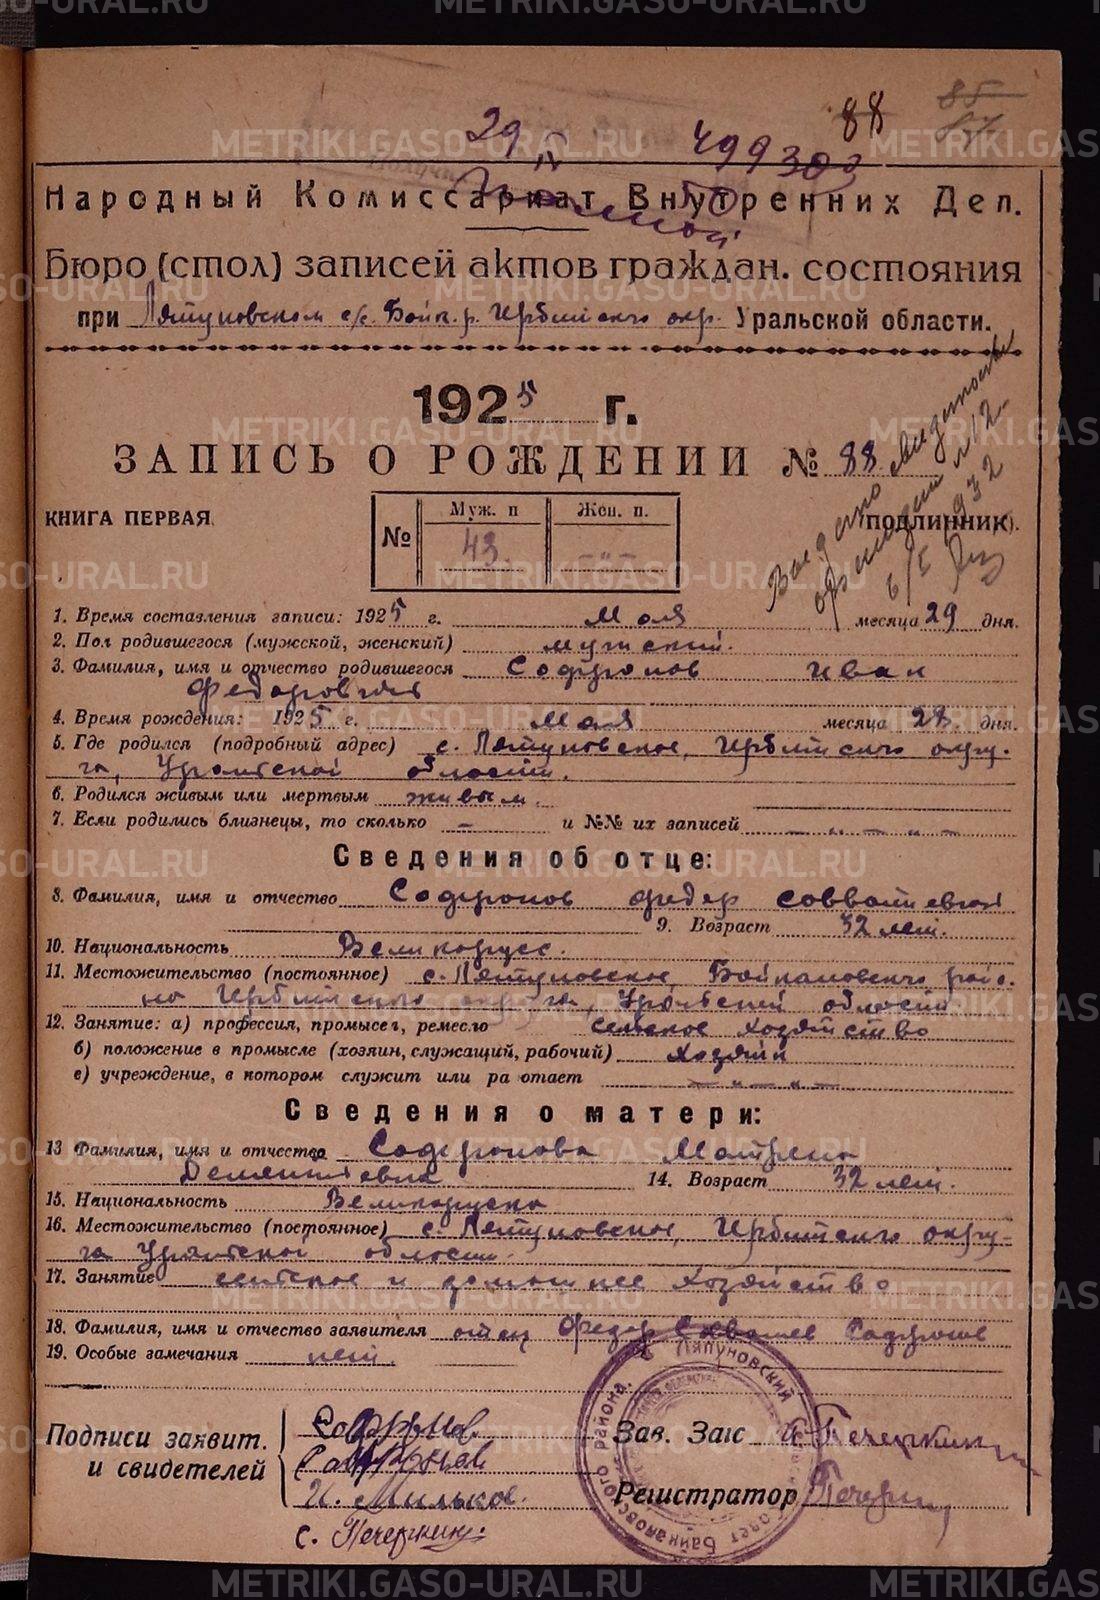 METRIKI.GASO-URAL.RU
88
85
87
29
499
303
Народный Комиссариат Внутренних Дел.
Бюро (стол) записей актов граждан. состояния
при Ляпуновском с/с. Байк. р. Ирбитского окр. Уральской области.
1925 г.
ЗАПИСЬ О РОЖДЕНИИ № 88
Выдано свидетельство
№ 12
1932
КНИГА ПЕРВАЯ
№
Муж. п
Жен. п.
(подлинник).
43.
- " -
1. Время составления записи: 1925 г. Мая месяца 29 дня.
2. Пол родившегося (мужской, женский) мужский.
3. Фамилия, имя и отчество родившегося Софронов Иван
Федорович
4. Время рождения: 1925 г. Мая месяца 28 дня.
5. Где родился (подробный адрес) с. Ляпуновское, Ирбитского окру-
га, Уральской области.
6. Родился живым или мертвым живым.
7. Если родились близнецы, то сколько – и №№ их записей – " – " –
Сведения об отце:
8. Фамилия, имя и отчество Софронов Федер Совватиевич
9. Возраст 32 лет.
10. Национальность Великорусс.
11. Местожительство (постоянное) с. Ляпуновское, Байкаловского райо-
на Ирбитского округа, Уральской области
12. Занятие: а) профессия, промысел, ремесло сельское хозяйство
б) положение в промысле (хозяин, служащий, рабочий) хозяин
в) учреждение, в котором служит или ра отает – " – " –
Сведения о матери:
13 Фамилия, имя и отчество Софронова Матрена
Дементьевна 14. Возраст 32 лет.
15. Национальность Великоруска
16. Местожительство (постоянное) с. Ляпуновское, Ирбитского окру-
га Уральской области.
17. Занятие сельское и домашнее хозяйство
18. Фамилия, имя и отчество заявителя отец Федор Софронов
19. Особые замечания нет.
Подписи заявит.
и свидетелей
Софронов.
Софронов
И. Мильков.
с. Печеркин.
Зав. Загс Печеркин
Регистратор Печеркин
Ляпуновский
совет Байкаловского района